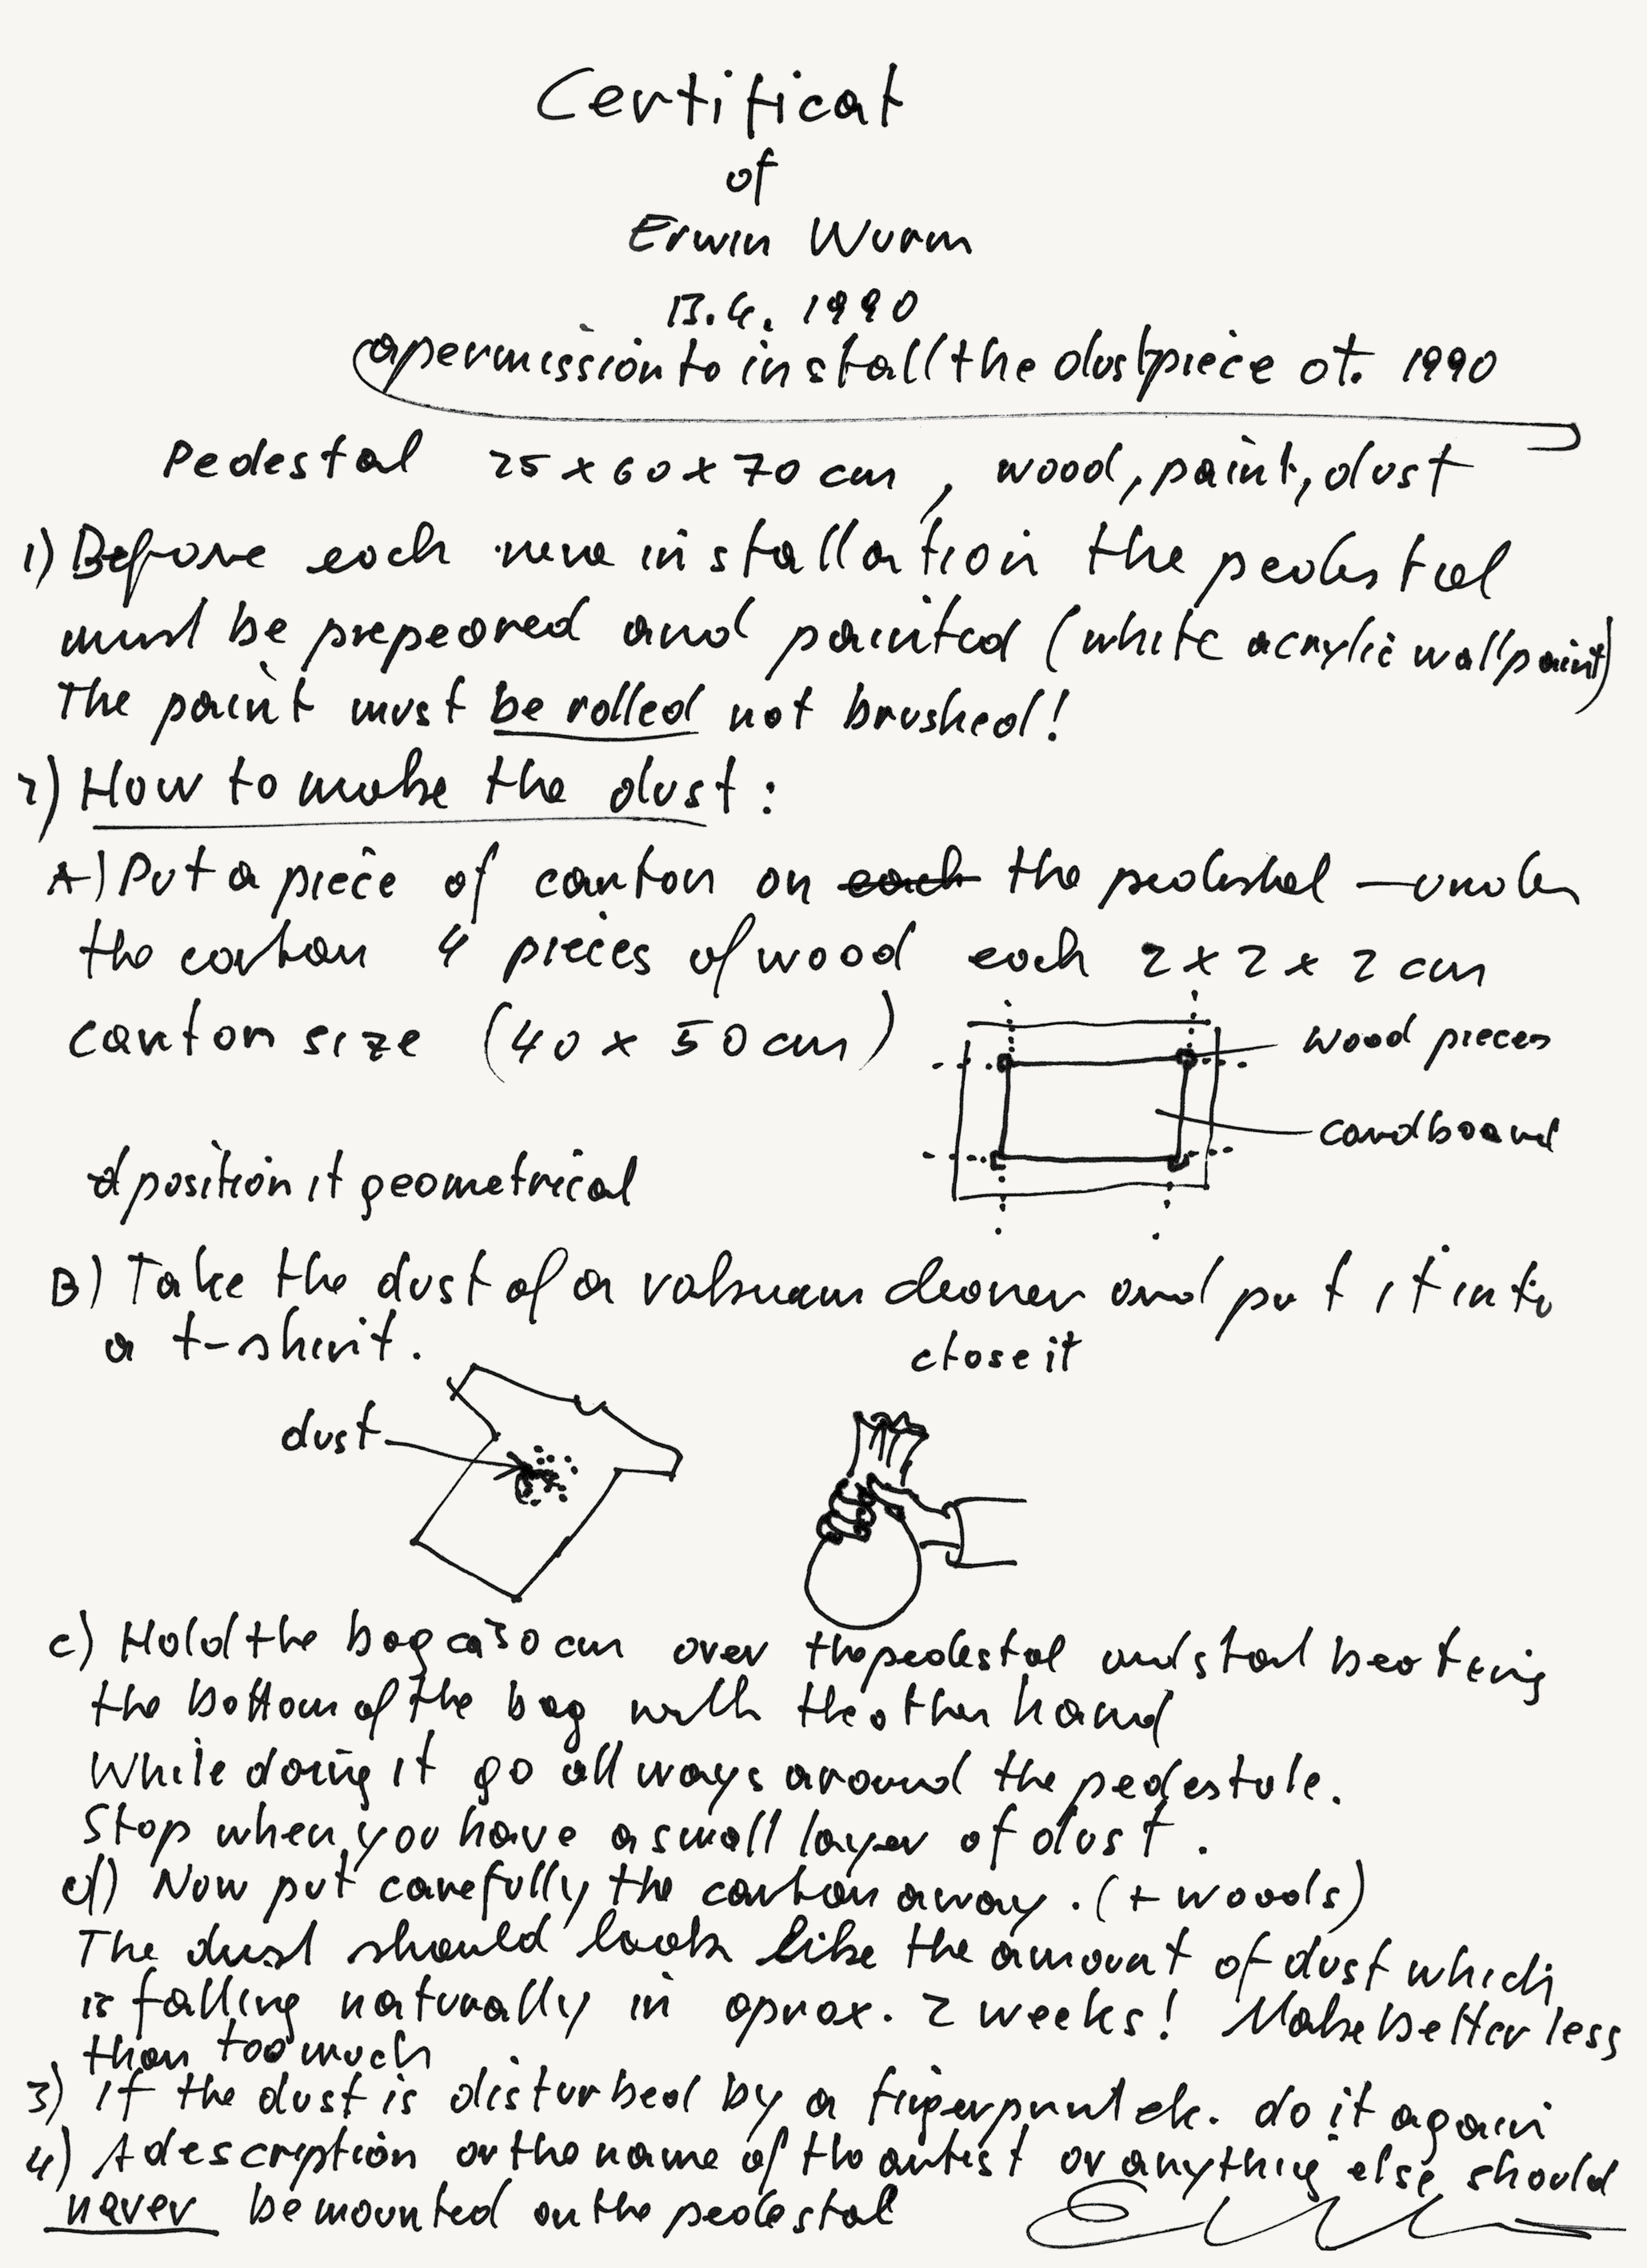 Certificat
of
Erwin Wurm
13.4. 1990
a permission to install the dustpiece of. 1990
Pedestal 25 x 60 x 70 cm, wood, paint, dust
1) Before each new installation the pedestal
must be prepeared and painted (white acrylic wallpaint)
The paint must be rolled not brushed!
2) How to make the dust:
A) Put a piece of carton on each the pedestal — under
the carton 4 pieces of wood each 2 x 2 x 2 cm
carton size (40 x 50 cm)
wood pieces
cardboard
position it geometrical
B) Take the dust of a vakuum cleaner and put it into
a t-shirt.
close it
dust
c) Hold the bag ca 50 cm over the pedestal and start beating
the bottom of the bag with the other hand
While doing it go all ways around the pedestale.
Stop when you have a small layer of dust.
d) Now put carefully the carton away. (+ woods)
The dust should look like the amount of dust which
is falling naturally in aprox. 2 weeks! Make better less
than too much
3) if the dust is disturbed by a fingerprint etc. do it again
4) A description or the name of the artist or anything else should
never be mounted on the pedestal